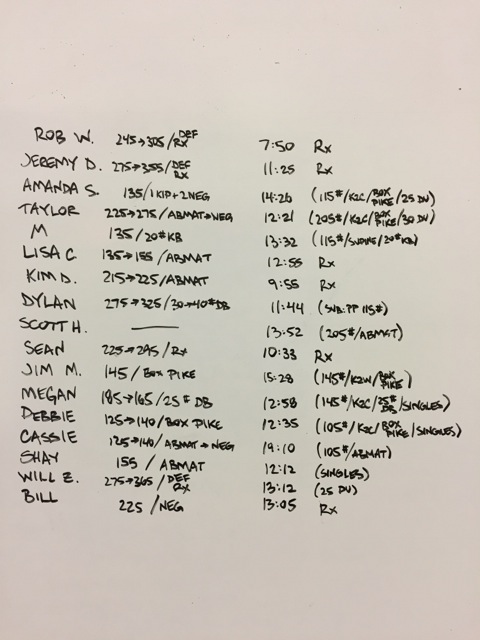 ROB W. 245→305/DEF RX 7:50 Rx
JEREMY D. 275→355/DEF RX 11:25 Rx
AMANDA S. 135/1 KIP+2NEG 14:26 (115#/K2C/BOX PIKE/25 DU)
TAYLOR 225→275/ABMAT→NEG 12:21 (205#/K2C/BOX PIKE/30 DU)
M 135/20#KB 13:32 (115#/ /20#KB)
LISA C 135→155/ABMAT 12:55 Rx
KIM D. 215→225/ABMAT 9:55 Rx
DYLAN 275→325/30→40#DB 11:44 (SUB: PP 115#)
SCOTT H. — 13:52 (205#/ABMAT)
SEAN 225→295/Rx 10:33 Rx
JIM M. 145/BOX PIKE 15:28 (145#/K2W/BOX PIKE)
MEGAN 185→165/25# DB 12:58 (145#/K2C/25# DB/SINGLES)
DEBBIE 125→140/BOX PIKE 12:35 (105#/K2C/BOX PIKE/SINGLES)
CASSIE 125→140/ABMAT→NEG 19:10 (105#/ABMAT)
SHAY 155/ABMAT 12:12 (SINGLES)
WILL E. 275→365/DEF RX 13:12 (25 DU)
BILL 225/NEG 13:05 Rx